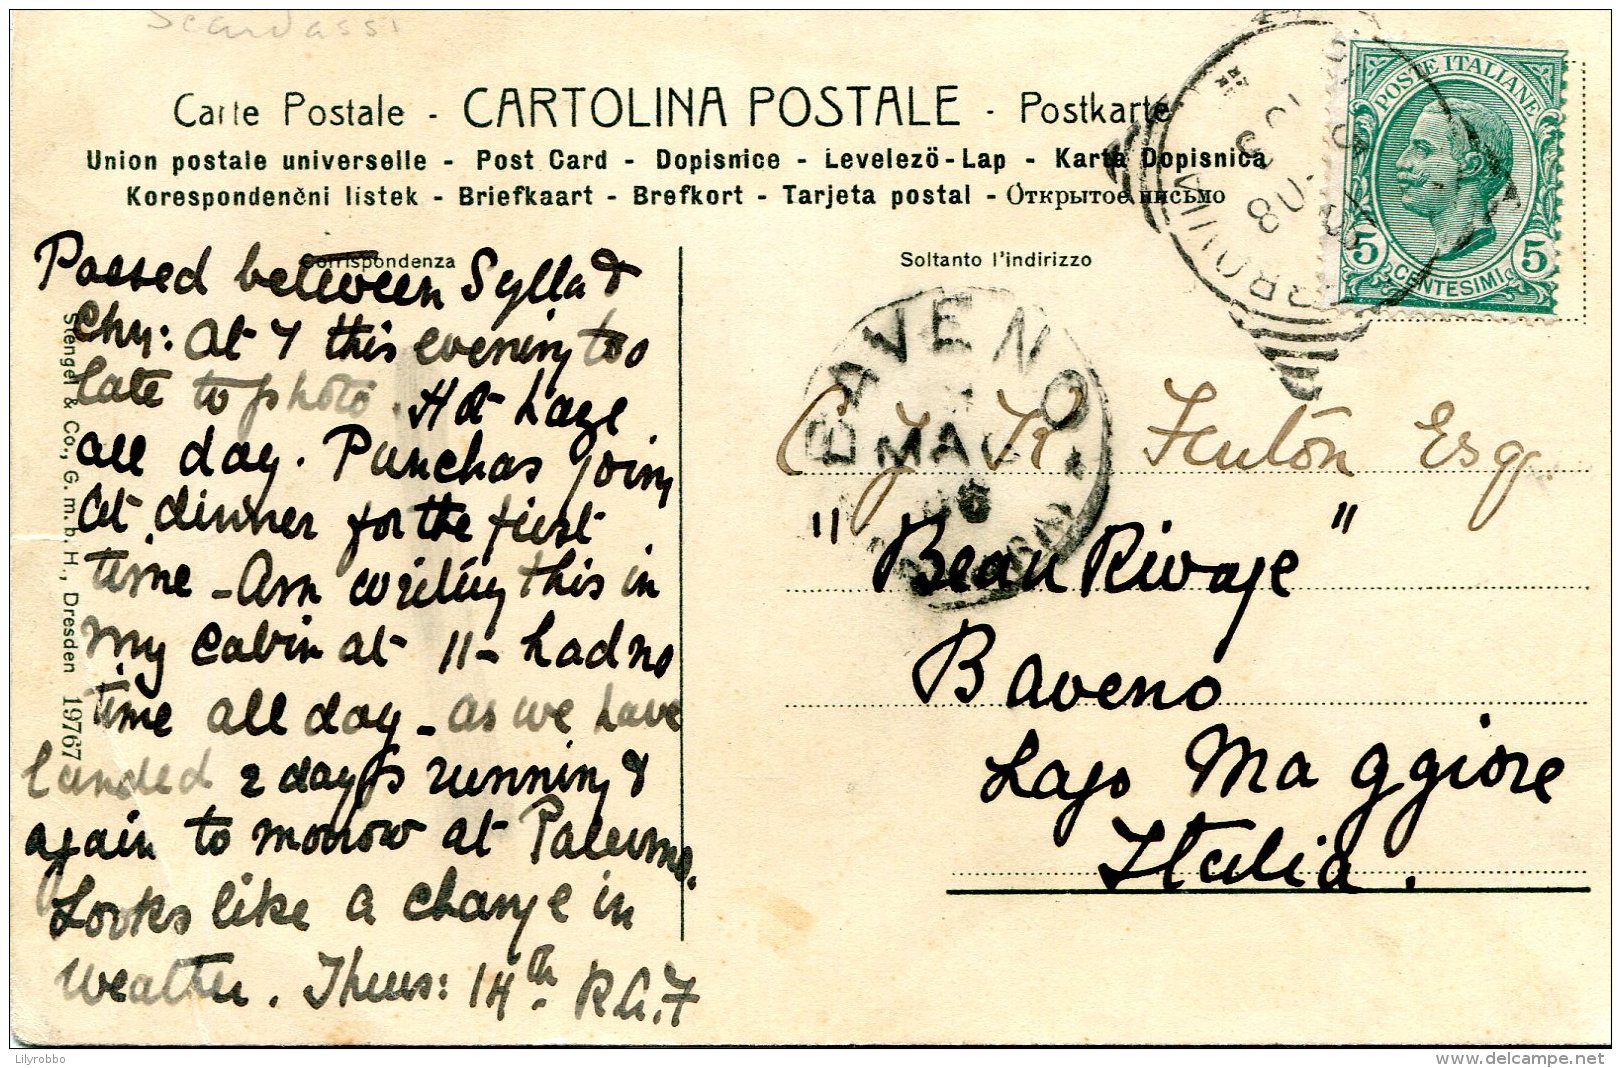 Scardassi
Carte Postale - CARTOLINA POSTALE - Postkarte
Union postale universelle - Post Card - Dopisnice - Levelező-Lap - Karta Dopisnica
Korespondenčni listek - Briefkaart - Brefkort - Tarjeta postal - Открытое письмо
Corrispondenza
Soltanto l'indirizzo
POSTE ITALIANE
5 CENTESIMI 5
BAVENO
MAG
Passed between Sylla &
Chy: at 7 this evening too
late to photo. Hot haze
all day. Punchas joing
at dinner for the first
time - Am writing this in
my cabin at 11 - had no
time all day - as we have
landed 2 days running &
again to morrow at Palermo.
Looks like a change in
weather. Thurs: 14th R.G.F
Stengel & Co., G. m. b. H., Dresden 19767
C J K Fenton Esq.
"Beau Rivage"
Baveno
Lago Maggiore
Italia.
Lilyrobbo
www.delcampe.net